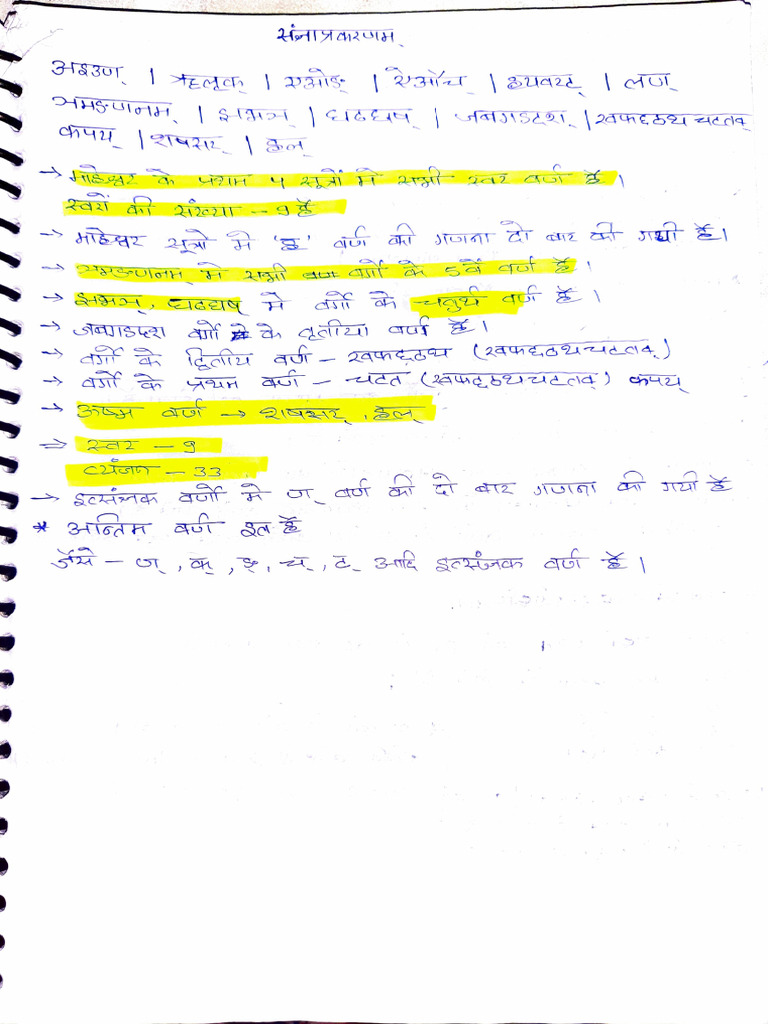 संज्ञाप्रकरणम्
अइउण् । ऋलृक् । एओङ् । ऐऔच् । हयवरट् । लण्
ञमङणनम् । झभञ् । घढधष् । जबगडदश् । खफछठथचटतव्
कपय् । शषसर् । हल्
→ माहेश्वर के प्रथम 4 सूत्रों में सभी स्वर वर्ण हैं ।
स्वरों की संख्या – 9 है
→ माहेश्वर सूत्रों में 'ह' वर्ण की गणना दो बार की गयी है ।
→ ञमङणनम् में सभी वर्गों के 5वें वर्ण हैं ।
→ झभञ्, घढधष् में वर्गों के चतुर्थ वर्ण हैं ।
→ जबगडदश वर्गों के तृतीया वर्ण हैं ।
→ वर्गों के द्वितीय वर्ण – खफछठथ (खफछठथचटतव्)
→ वर्गों के प्रथम वर्ण – चटत (खफछठथचटतव्) कपय्
→ ऊष्म वर्ण → शषसर्, हल्
⇒ स्वर – 9
व्यंजन – 33
→ इत्संज्ञक वर्णों में ण् वर्ण की दो बार गणना की गयी है
* अन्तिम वर्ण इत हैं
जैसे – ण्, क्, ङ्, च्, ट् आदि इत्संज्ञक वर्ण हैं ।